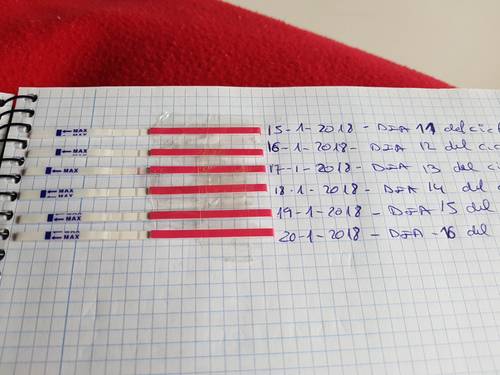 MAX 15-1-2018 - DIA 11 del cicl
MAX 16-1-2018 - DIA 12 del cic
MAX 17-1-2018 - DIA 13 del ci
MAX 18-1-2018 - DIA 14 del
MAX 19-1-2018 - DIA 15 del
MAX 20-1-2018 - DIA 16 del